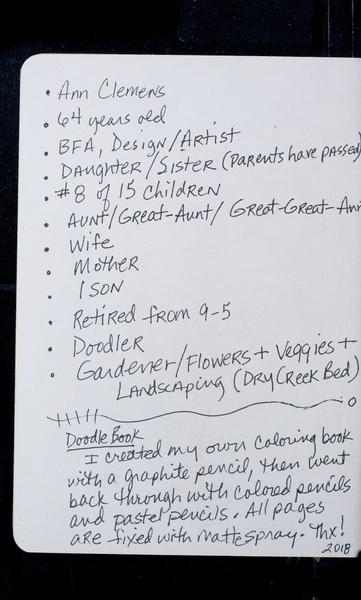 • Ann Clemens
• 64 years old
• BFA, Design/Artist
• Daughter/Sister (Parents have passed)
• #8 of 15 children
• Aunt/Great-Aunt/ Great-Great-
• Wife
• Mother
• 1 son
• Retired from 9-5
• Doodler
• Gardener/Flowers + Veggies +
Landscaping (Dry Creek Bed)
Doodle Book
I created my own coloring book
with a graphite pencil, then went
back through with colored pencils
and pastel pencils. All pages
are fixed with matte spray. Thx!
2018